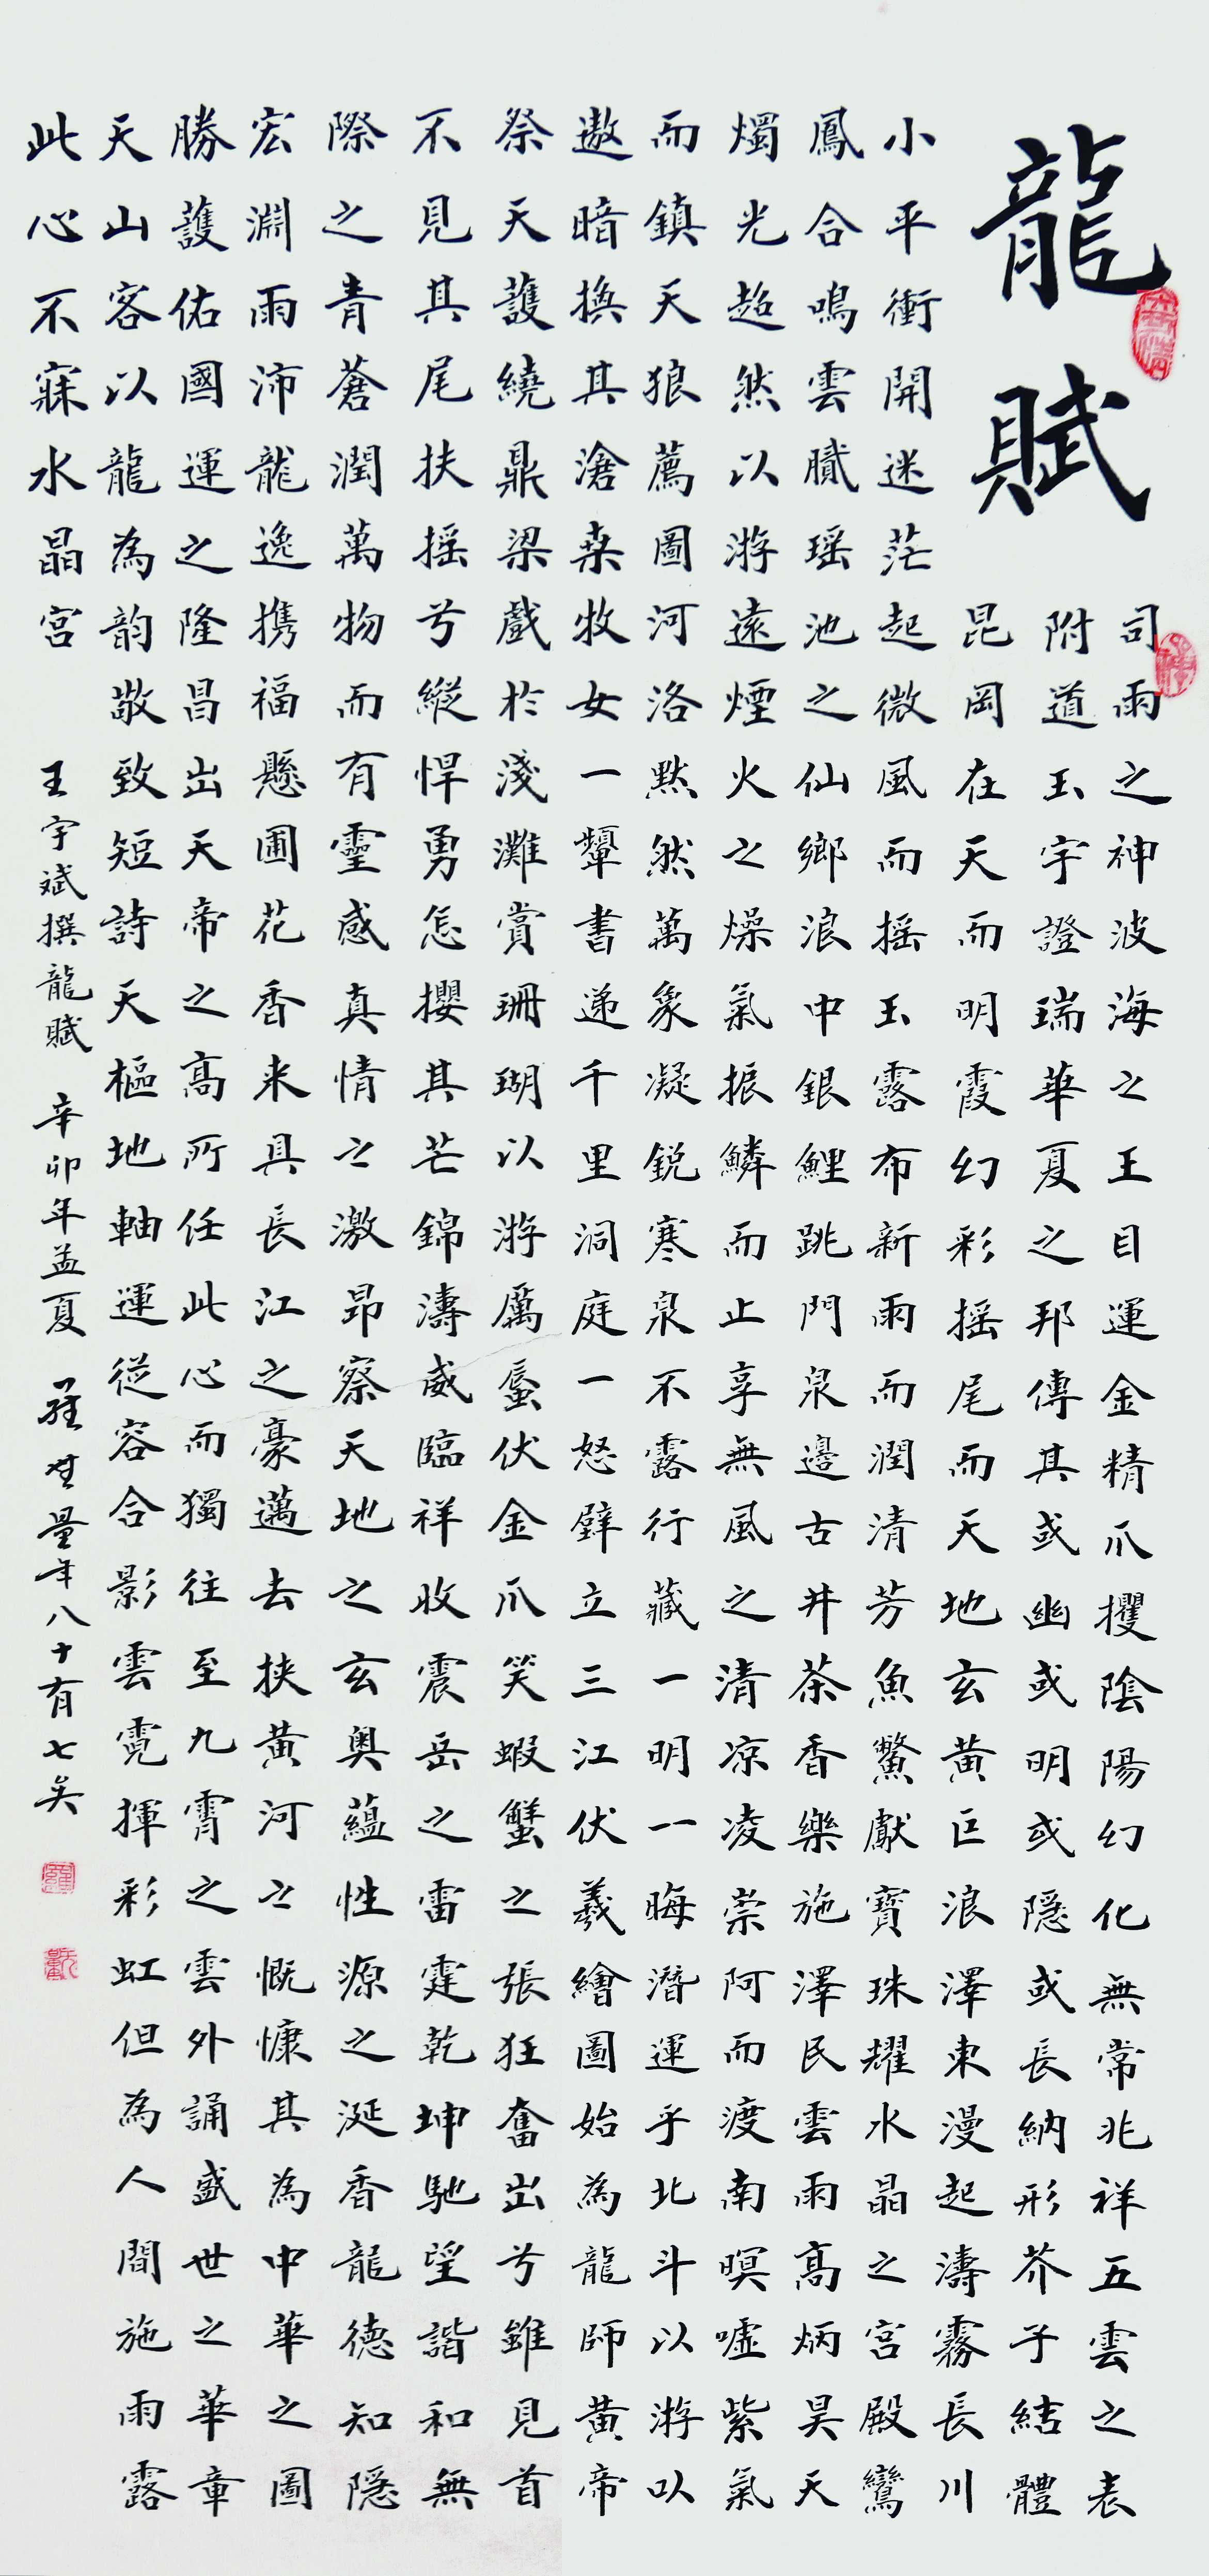 龍賦
司雨之神波海之王目運金精爪攫陰陽幻化無常兆祥五雲之表
附道玉宇證瑞華夏之邦傳其或幽或明或隱或長納形芥子結體
昆岡在天而明霞幻彩搖尾而天地玄黃巨浪澤東漫起濤霧長川
小平衝開迷茫起微風而搖玉露布新雨而潤清芳魚鱉獻寶珠耀水晶之宮殿鸞
鳳合鳴雲臏瑶池之仙鄉浪中銀鯉跳門泉邊古井茶香樂施澤民雲雨高炳昊天
燭光超然以游遠煙火之燥氣振鱗而止享無風之清凉凌崇阿而渡南暝噓紫氣
而鎮天狼薦圖河洛默然萬象凝銳寒泉不露行藏一明一晦潛運乎北斗以游以
遨暗換其滄桑牧女一顰書递千里洞庭一怒壁立三江伏羲繪圖始為龍師黃帝
祭天護繞鼎梁戲於淺灘賞珊瑚以游厲蜃伏金爪笑蝦蟹之張狂奮出兮雖見首
不見其尾扶摇兮縱悍勇怎攖其芒錦濤威臨祥收震岳之雷霆乾坤馳望諧和無
際之青蒼潤萬物而有靈感真情之激昂察天地之玄奥藴性源之涎香龍德知隱
宏淵雨沛龍逸携福懸圃花香来具長江之豪邁去挟黃河之慨慷其為中華之圖
勝護佑國運之隆昌出天帝之高所任此心而獨往至九霄之雲外誦盛世之華章
天山客以龍為韵敬致短詩天樞地軸運從容合影雲霓揮彩虹但為人間施雨露
此心不寐水晶宮
王宇斌撰龍賦 辛卯年孟夏 羅世量年八十有七矣